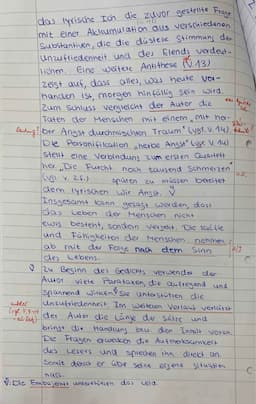 das lyrische Ich die zuvor gestellte Frage
mit einer Akkumulation aus verschiedenen
Substantiven, die die düstere Stimmung der
Unzufriedenheit und des Elends verdeut-
lichen. Eine weitere Antithese (V. 13)
zeigt auf, dass alles, was heute vor-
handen ist, morgen hinfällig sein wird.
Zum Schluss vergleicht der Autor die
Taten der Menschen mit einem „mit her-
ber Angst durchmischten Traum" (vgl. V. 14)
Die Personifikation „herbe Angst" (vgl. V. 14)
stellt eine Verbindung zum ersten Quartett
her. Die Furcht noch tausend Schmerzen
(vgl. V. 2f.) später zu müssen bereitet
dem lyrischen Wir Angst. V
Insgesamt kann gesagt werden, dass
das Leben der Menschen nicht
ewig besteht, sondern vergeht. Die
und Fähigkeiten der Menschen nehmen
ab mit der Frage nach dem Sinn
des Lebens.
V Zu Beginn des Gedichts verwendet der
Autor viele Parataxen, die aufregend und
spannend wirken. Sie unterstützen die
Unzufriedenheit. Im weiteren Verlauf variiert
der Autor die Länge der Sätze und
bringt die Handlung bzw. den Inhalt voran.
Die Fragen erwecken die Aufmerksamkeit
des Lesers und sprechen ihn direkt an.
Somit denkt er über seine eigene Situation
nach.
V: Die Enjambements unterstützen das